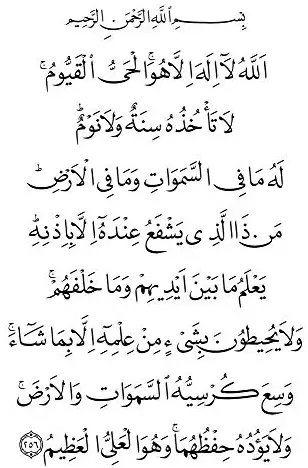 بِسْمِ اللَّهِ الرَّحْمَنِ الرَّحِيمِ
اَللَّهُ لَآ اِلَهَ اِلَّا هُوَ الْحَىُّ الْقَيُّومُ
لَا تَأْخُذُهُ سِنَةٌ وَلَا نَوْمٌ
لَهُ مَا فِى السَّمَوَاتِ وَمَا فِى الْاَرْضِ
مَنْ ذَا الَّذِى يَشْفَعُ عِنْدَهُٓ اِلَّا بِاِذْنِهِ
يَعْلَمُ مَا بَيْنَ اَيْدِيهِمْ وَمَا خَلْفَهُمْ
وَلَا يُحِيطُونَ بِشَىْءٍ مِنْ عِلْمِهِٓ اِلَّا بِمَا شَآءَ
وَسِعَ كُرْسِيُّهُ السَّمَوَاتِ وَالْاَرْضَ
وَلَا يَؤُدُهُ حِفْظُهُمَا وَهُوَ الْعَلِىُّ الْعَظِيمُ ﴿٢٥٦﴾